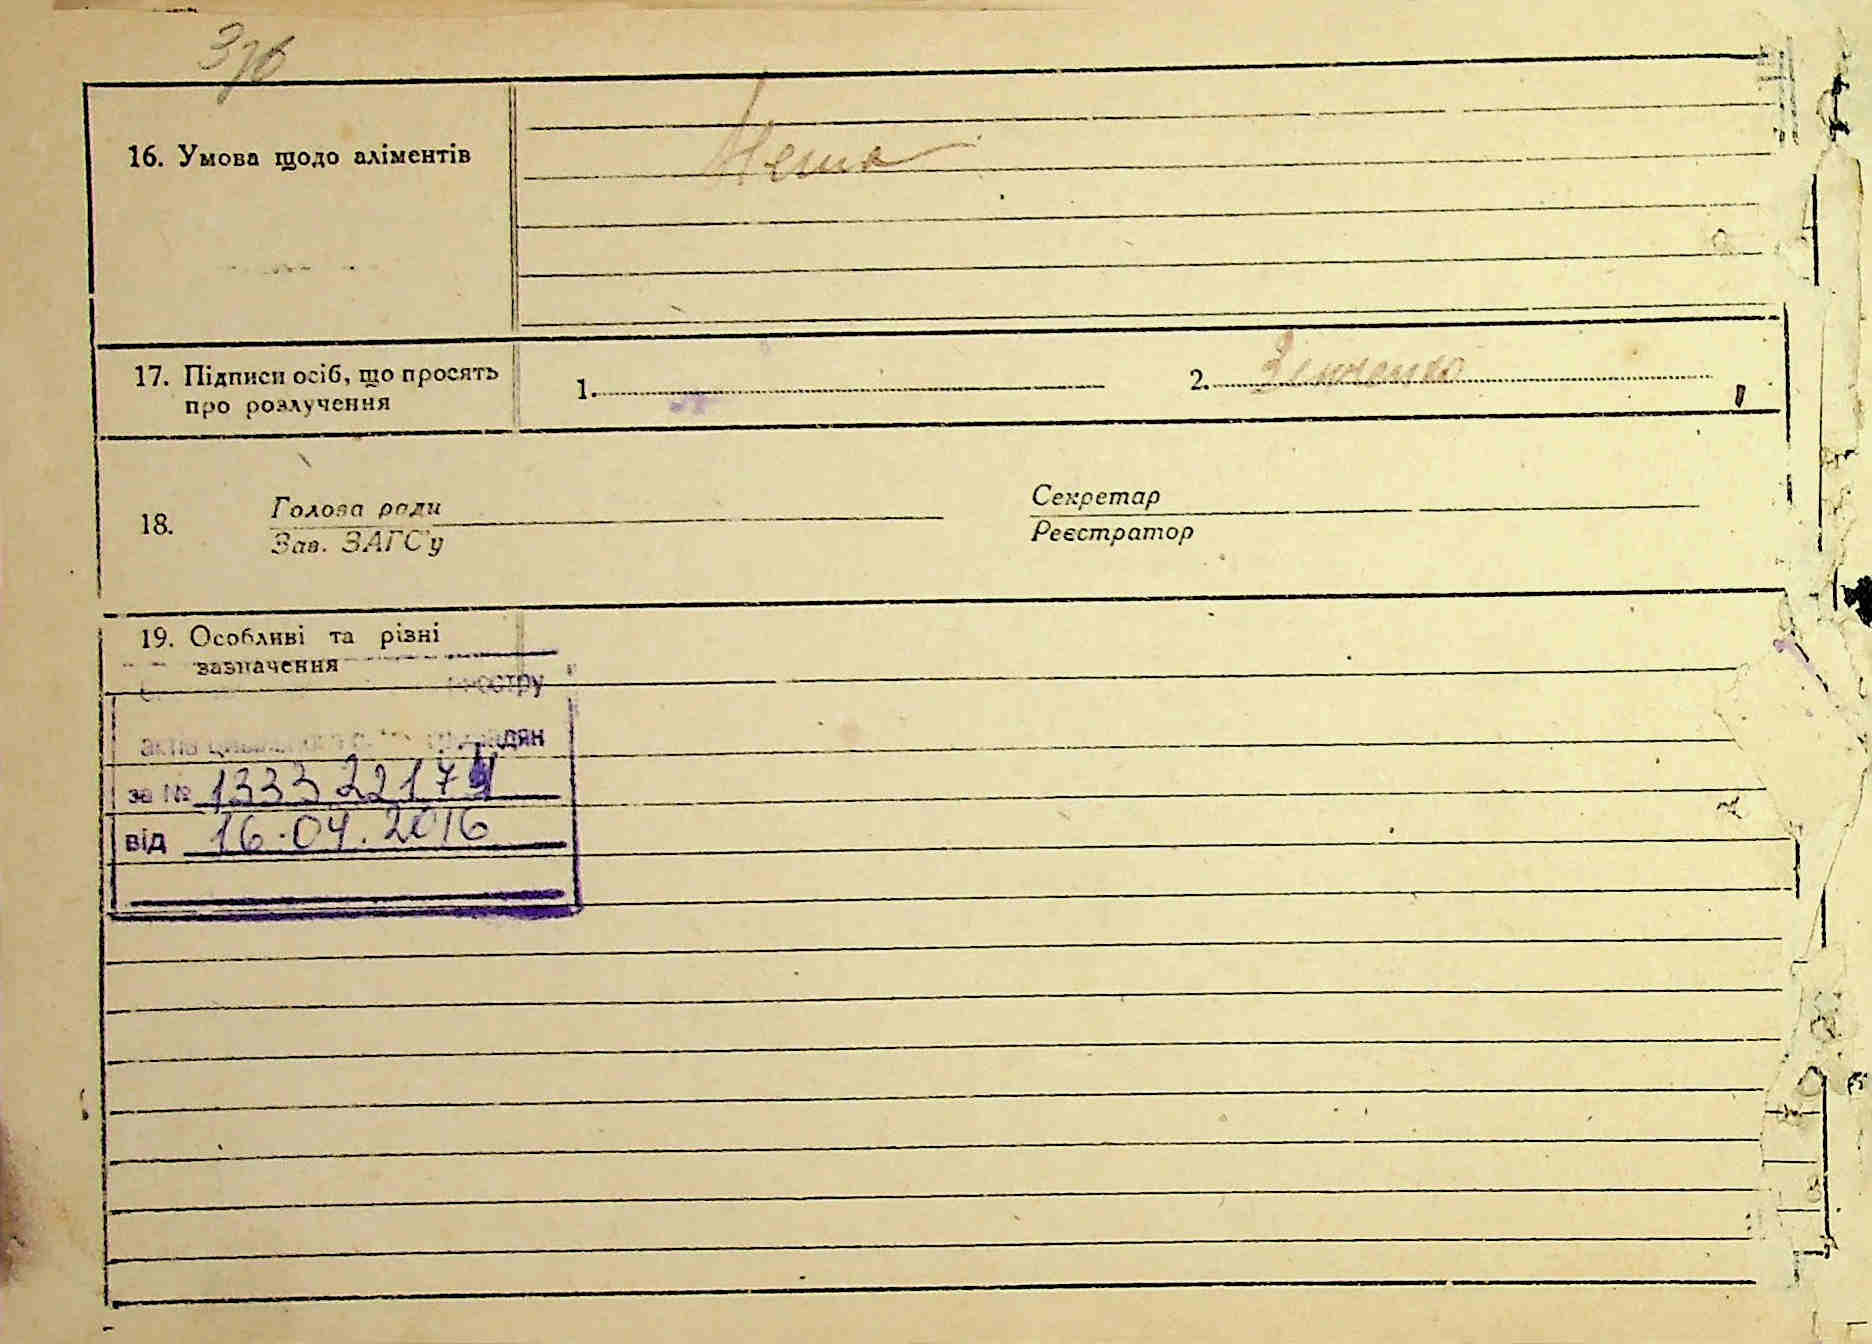 16. Умова щодо аліментів
Нема
17. Підписи осіб, що просять
про розлучення
1.
2. Зинченко
18.
Голова ради
Зав. ЗАГС'у
Секретар
Реєстратор
19. Особливі та різні
зазначення
реєстру
актів цивільного стану громадян
за №
від 16.04.2016